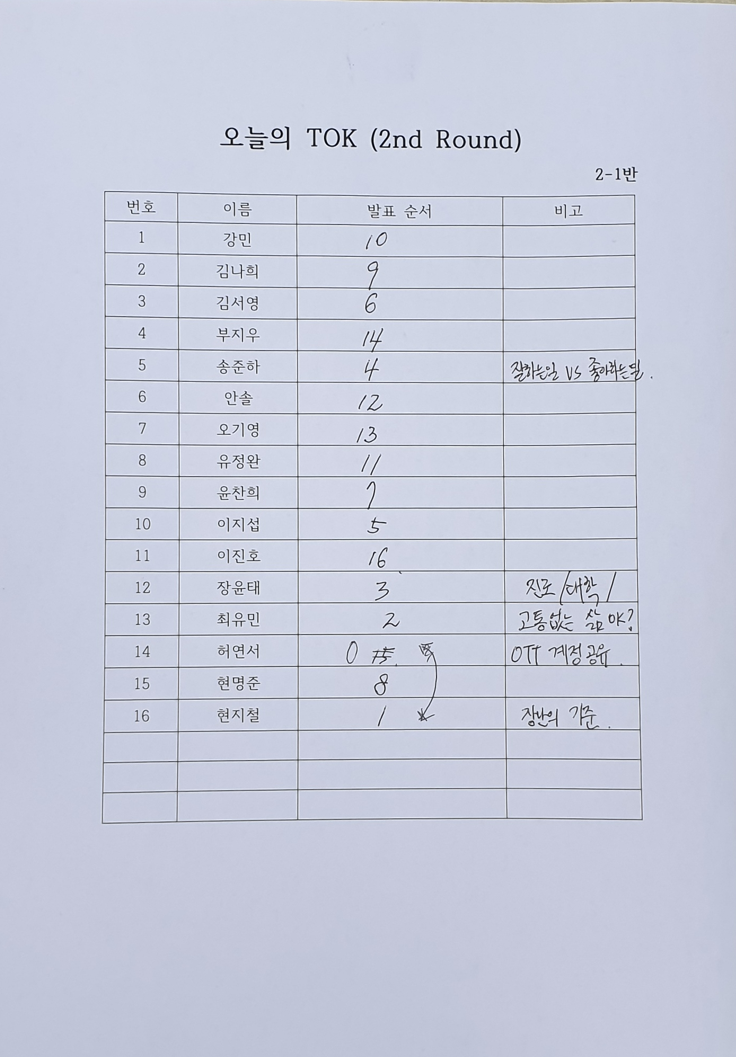 오늘의 TOK (2nd Round)
2-1반
번호 이름 발표 순서 비고
1 강민 10
2 김나희 9
3 김서영 6
4 부지우 14
5 송준하 4 잘하는일 VS 좋아하는일.
6 안솔 12
7 오기영 13
8 유정완 11
9 윤찬희 7
10 이지섭 5
11 이진호 16
12 장윤태 3 진로/대학/
13 최유민 2 고통없는 삶 OK?
14 허연서 0 OTT 계정공유.
15 현명준 8
16 현지철 1 장난의 기준.